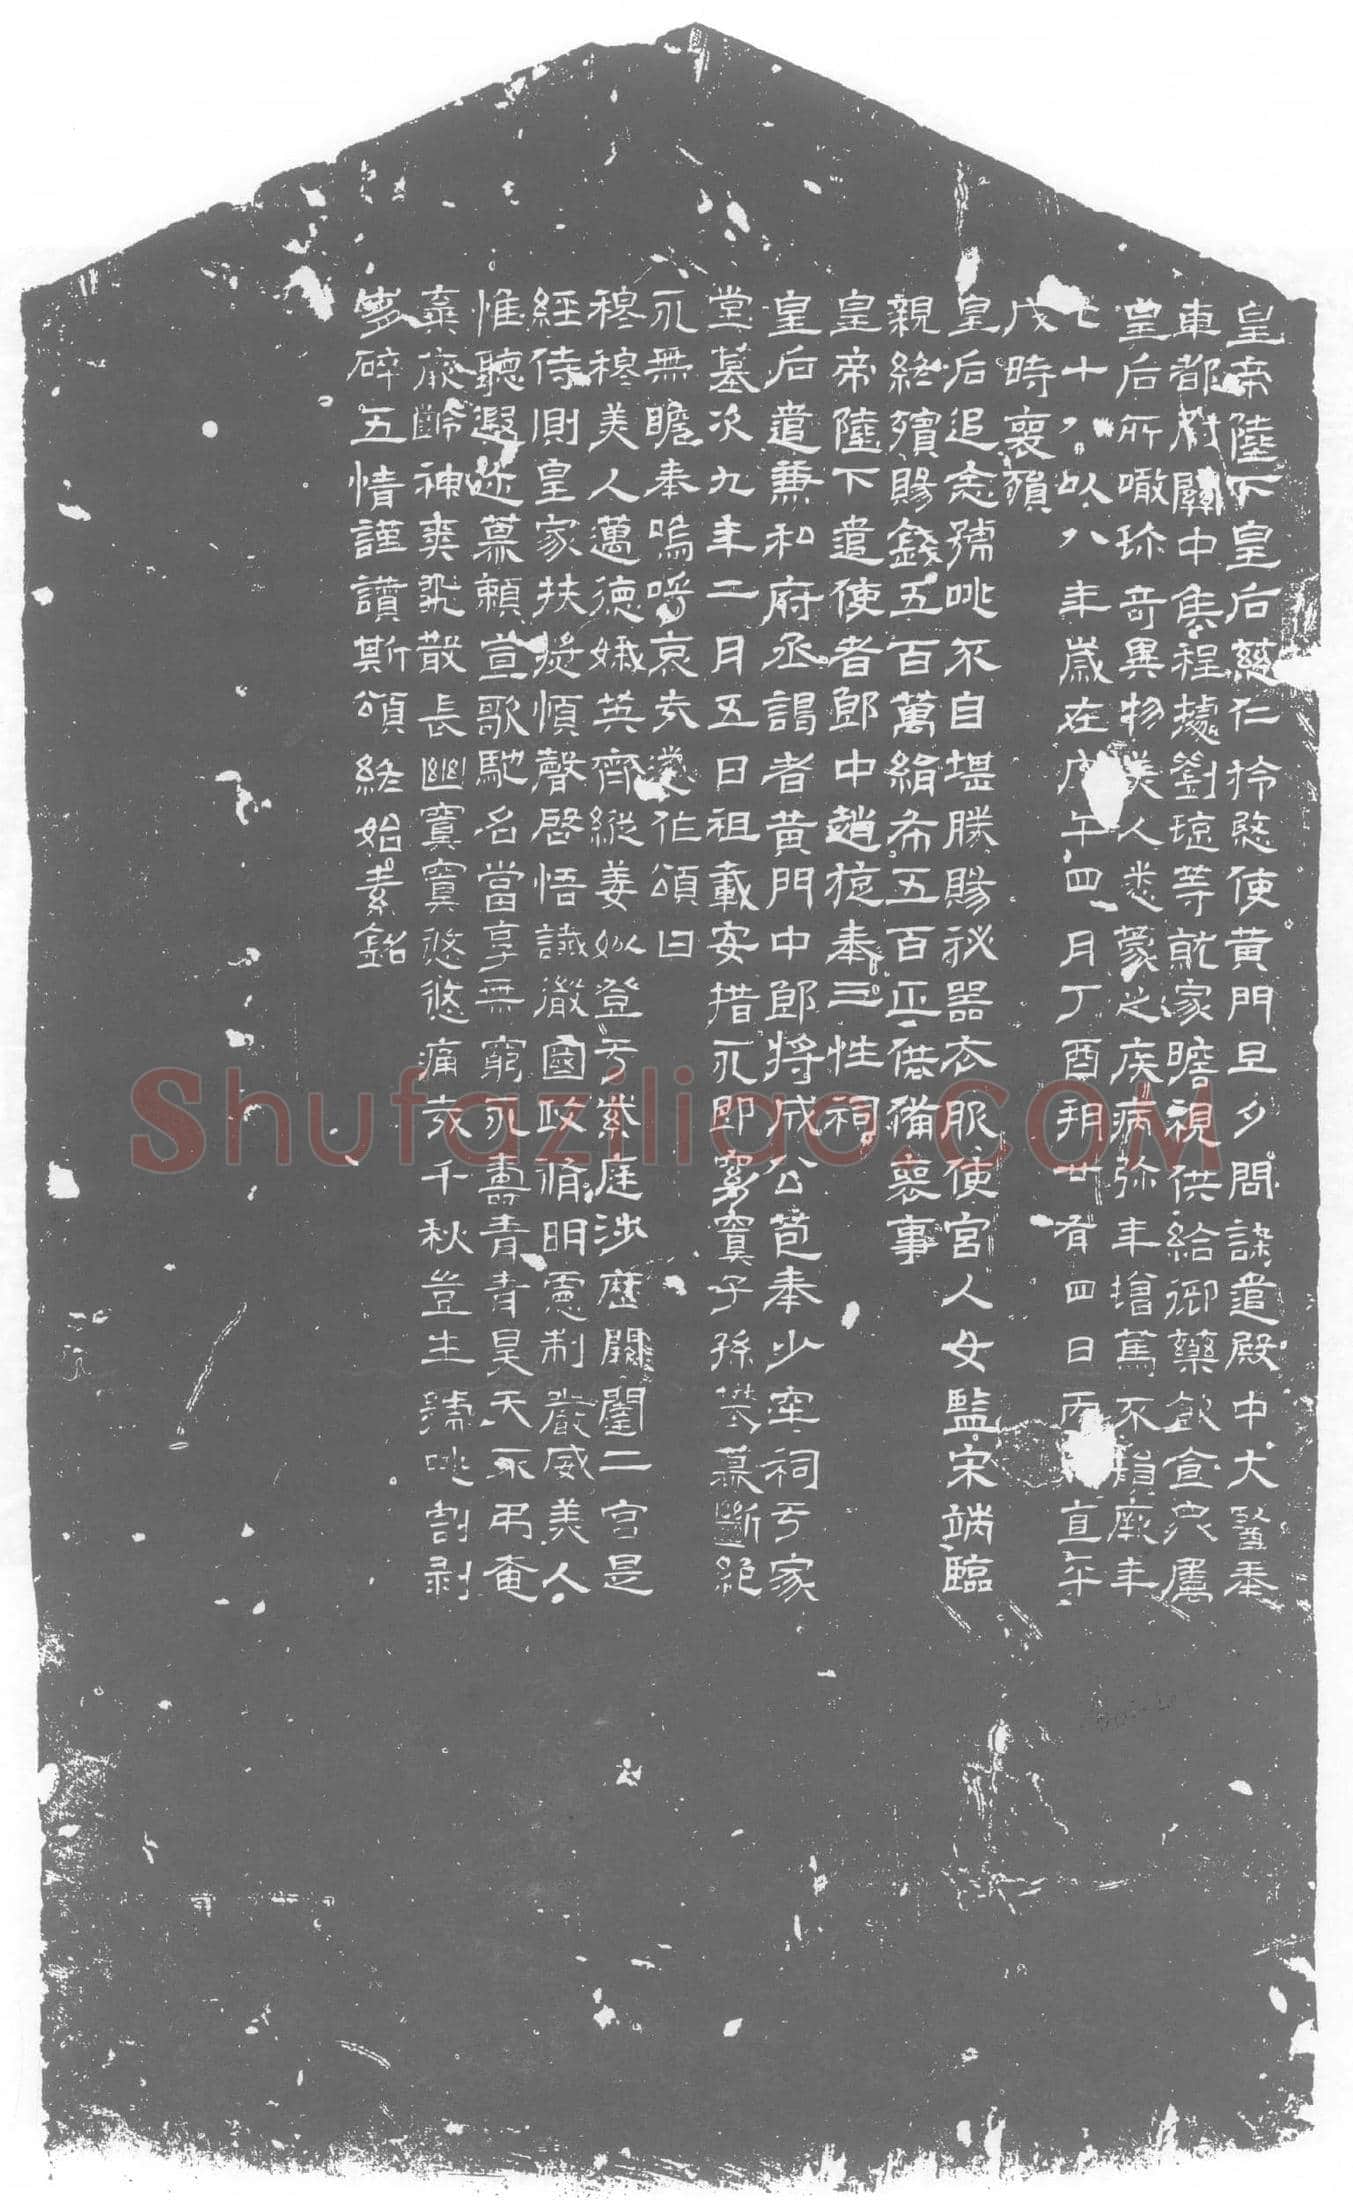 皇帝陛下皇后慈仁矜愍使黃門旦夕問訊遣殿中大醫奉
車都尉關中侯程據劉琁等就家瞻視供給御藥飲食众屬
皇后所噉珍奇異物美人悉蒙之疾病弥年增篤不損厥年
七十八以八年歲在戊午四月丁酉朔廿有四日丙直午
戊時喪殞
皇后追念號咷不自堪勝賜祕器衣服使宮人女監宋端臨
親終殯賜錢五百萬絹布五百匹供備喪事
皇帝陛下遣使者郎中趙㨨奉三牲祠
皇后遣兼私府丞謁者黃門中郎將成公苞奉少牢祠于家
堂墓次九年二月五日祖載安措永即窈窴子孫攀慕斷絕
永無瞻奉嗚呼哀哉遂作頌曰
穆穆美人邁德娥英齊縱姜姒登于紫庭涉歷閱闈二宮是
經侍側皇家扶疑順聲啓悟識徹國政脩明憲制嚴威美人
惟聽遐迩慕賴宣歌馳名當享無窮永壽青青昊天不弔奄
棄厥齡神爽飛散長幽窴窴悠悠痛哉千秋豈生號咷割剥
崩碎五情謹讚斯頌終始素銘
Shufaziliao.COM